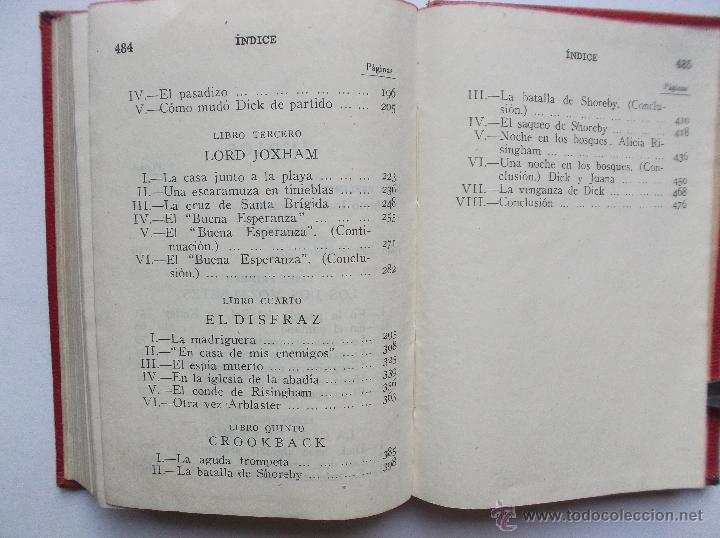 484 ÍNDICE
Páginas
IV.—El pasadizo ... ... ... ... ... ... ... 196
V.—Cómo mudó Dick de partido ... ... 205
LIBRO TERCERO
LORD JOXHAM
I.—La casa junto a la playa ... ... ... 223
II.—Una escaramuza en tinieblas ... ... 236
III.—La cruz de Santa Brígida ... ... ... 248
IV.—El "Buena Esperanza" ... ... ... ... 255
V.—El "Buena Esperanza". (Conti-
nuación.) ... ... ... ... ... ... ... 271
VI.—El "Buena Esperanza". (Conclu-
sión.) ... ... ... ... ... ... ... ... 282
LIBRO CUARTO
EL DISFRAZ
I.—La madriguera ... ... ... ... ... ... 295
II.—"En casa de mis enemigos" ... ... 308
III.—El espía muerto ... ... ... ... ... 325
IV.—En la iglesia de la abadía ... ... ... 339
V.—El conde de Risingham ... ... ... ... 356
VI.—Otra vez Arblaster ... ... ... ... ... 363
LIBRO QUINTO
CROOKBACK
I.—La aguda trompeta ... ... ... ... ... 385
II.—La batalla de Shoreby ... ... ... ... 398
ÍNDICE 485
Páginas
III.—La batalla de Shoreby. (Conclu-
sión.) ... ... ... ... ... ... ... ... 410
IV.—El saqueo de Shoreby ... ... ... ... 418
V.—Noche en los bosques. Alicia Ri-
singham ... ... ... ... ... ... ... 436
VI.—Una noche en los bosques. (Con-
clusión.) Dick y Juana ... ... ... 450
VII.—La venganza de Dick ... ... ... ... 468
VIII.—Conclusión ... ... ... ... ... ... ... 476
www.todocoleccion.net